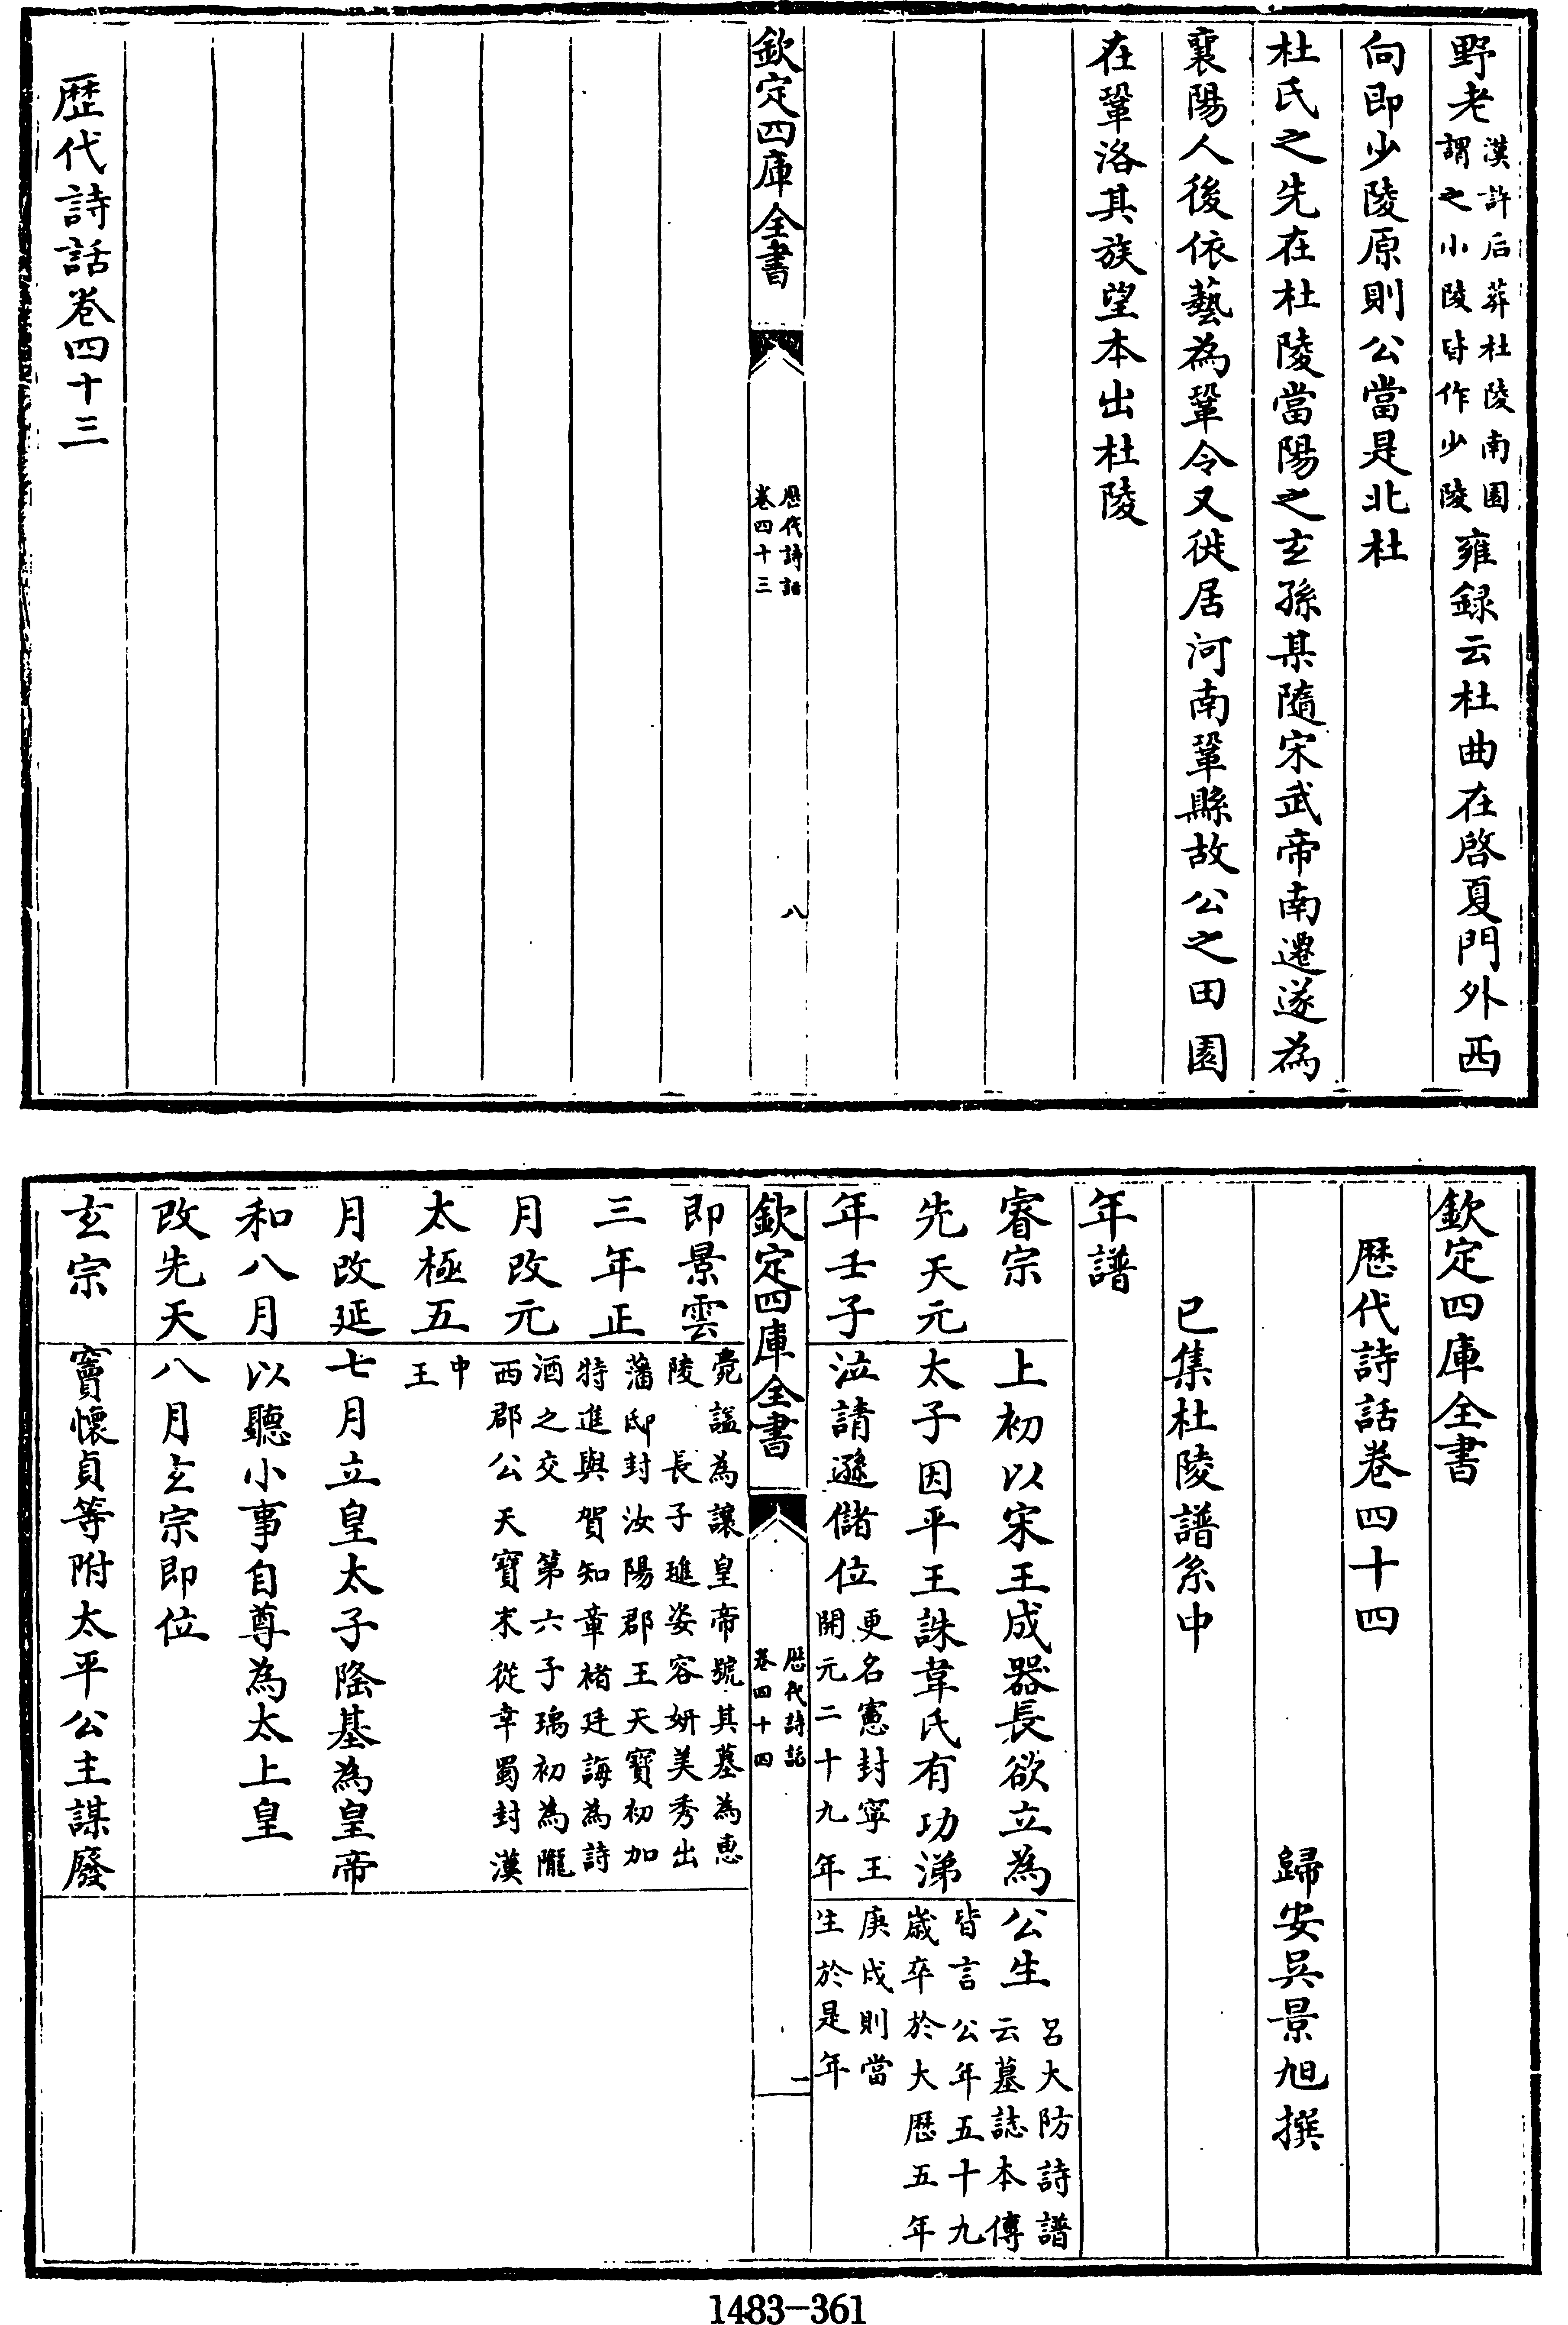 野老漢許后葬杜陵南園謂之小陵皆作少陵雍録云杜曲在啓夏門外西
向即少陵原則公當是北杜
杜氏之先在杜陵當陽之玄孫某隨宋武帝南遷遂為
襄陽人後依藝為鞏令又徙居河南鞏縣故公之田園
在鞏洛其族望本出杜陵
欽定四庫全書
歴代詩話
卷四十三
八
歴代詩話卷四十三
欽定四庫全書
歴代詩話卷四十四
歸安吳景旭撰
已集杜陵譜系中
年譜
睿宗
先天元
年壬子
上初以宋王成器長欲立為
太子因平王誅韋氏有功涕
泣請遜儲位更名憲封寧王開元二十九年
公生呂大防詩譜云墓誌本傳
皆言公年五十九歲卒於大歴五年
庚戌則當生於是年
欽定四庫全書
歴代詩話
卷四十四
一
即景雲
三年正
月改元
太極五
月改延
和八月
改先天
薨諡為讓皇帝號其墓為惠
陵 長子璡姿容妍美秀出
藩邸封汝陽郡王天寶初加
特進與賀知章褚廷誨為詩
酒之交 第六子瑀初為隴
西郡公天寶末從幸蜀封漢
中王
七月立皇太子隆基為皇帝
以聽小事自尊為太上皇
八月玄宗即位
玄宗
竇懷貞等附太平公主謀廢
1483-361